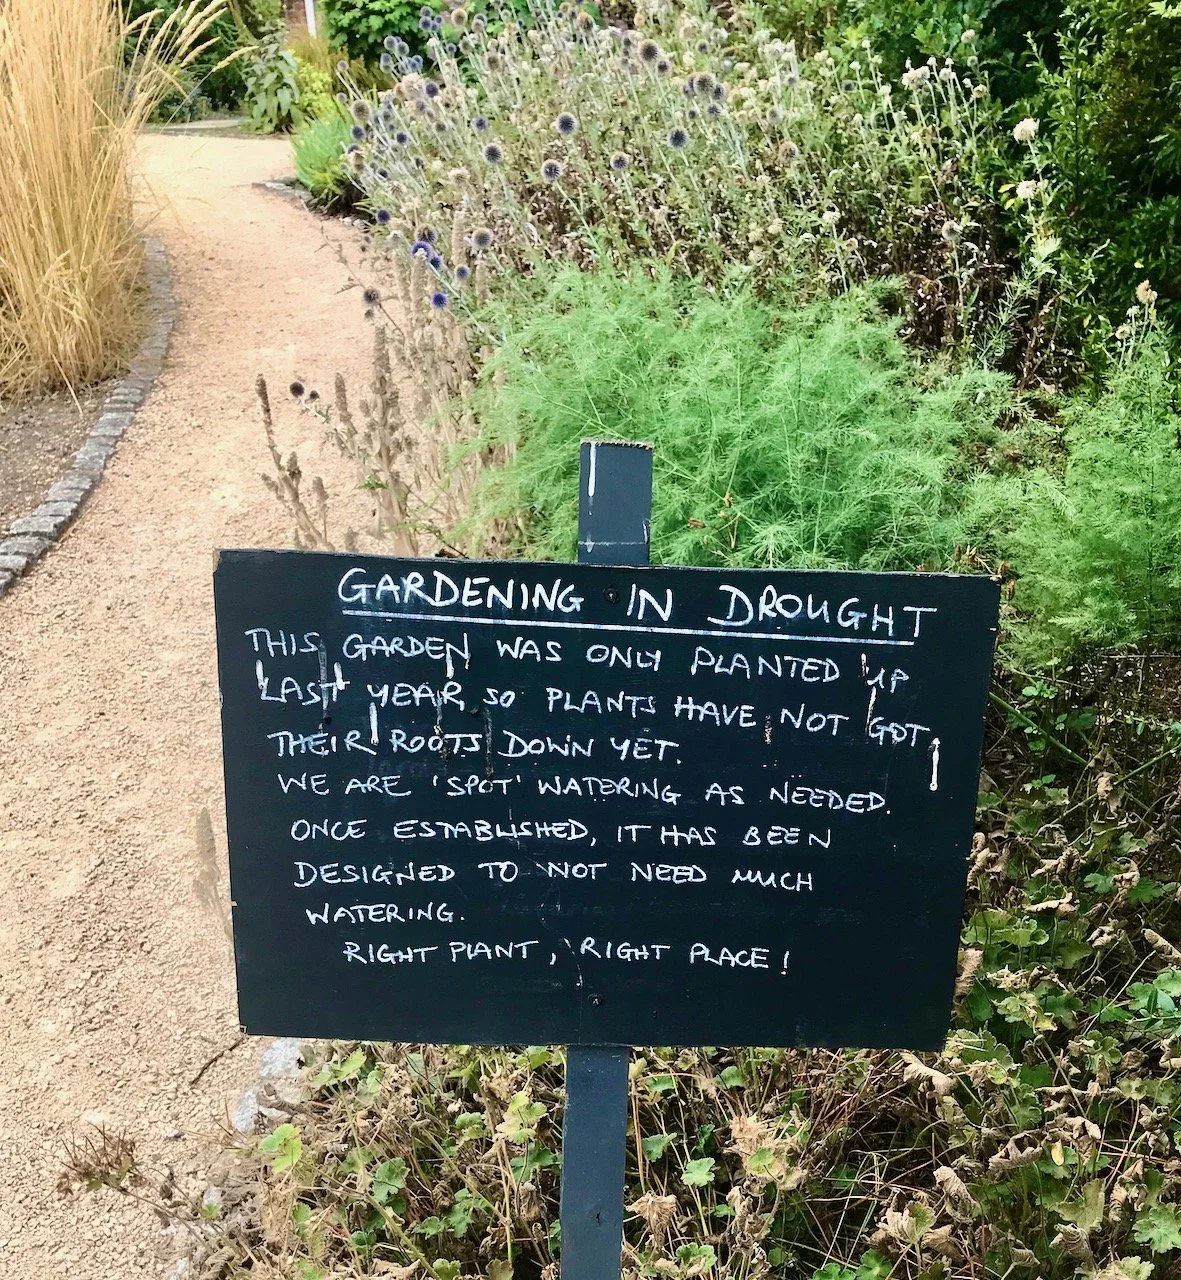 GARDENING IN DROUGHT
THIS GARDEN WAS ONLY PLANTED UP
LAST YEAR SO PLANTS HAVE NOT GOT
THEIR ROOTS DOWN YET.
WE ARE 'SPOT' WATERING AS NEEDED.
ONCE ESTABLISHED, IT HAS BEEN
DESIGNED TO NOT NEED MUCH
WATERING.
RIGHT PLANT, RIGHT PLACE!